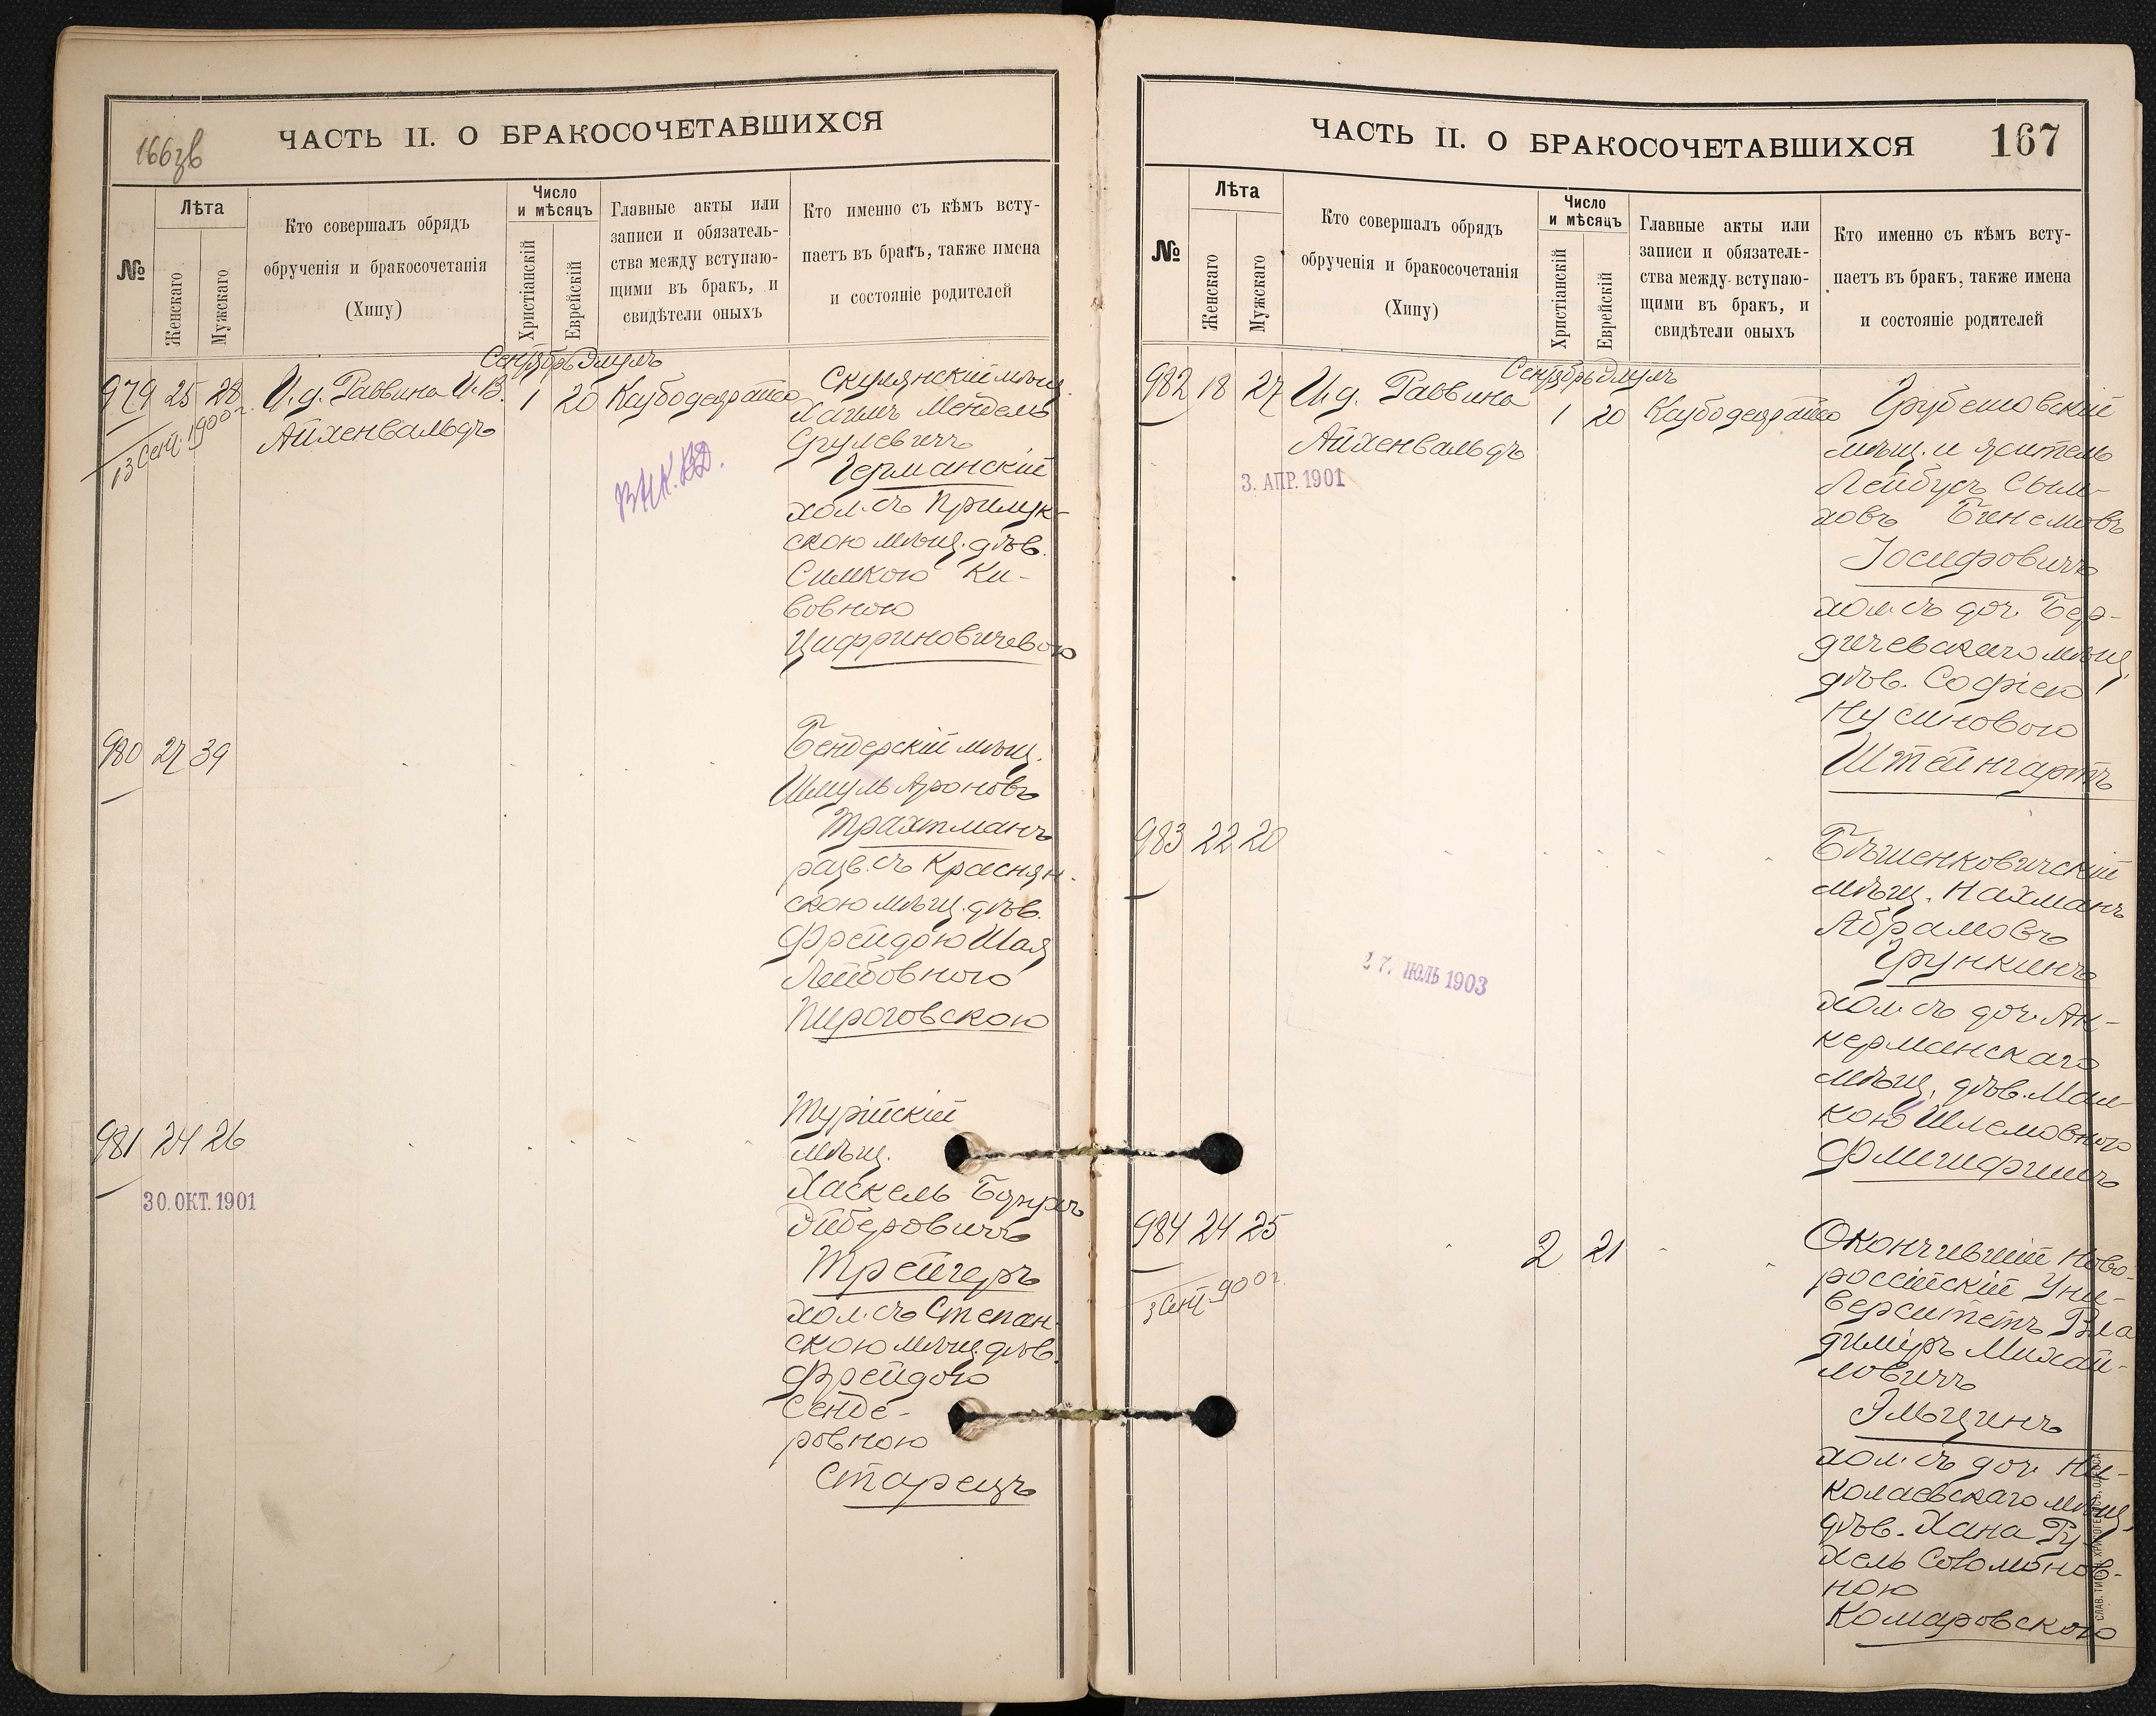 166зв
ЧАСТЬ II. О БРАКОСОЧЕТАВШИХСЯ
№
Лѣта
Женскаго
Мужскаго
Кто совершалъ обрядъ
обрученія и бракосочетанія
(Хипу)
Число
и мѣсяцъ
Христіанскій
Еврейскій
Главные акты или
записи и обязатель-
ства между вступаю-
щими въ бракъ, и
свидѣтели оныхъ
Кто именно съ кѣмъ всту-
паетъ въ бракъ, также имена
и состояніе родителей
Сентябрь Элулъ
979 25 28 И.д. Раввина И.В.
Айхенвальдъ
1 20
13 Сент. 1900 г.
Скулянскій мѣщ.
Хаимъ Мендель
Срулевичъ
Германскій
хол. съ Прилук-
скою мѣщ. дѣв.
Симкою Ки-
вовною
Цифриновичевою
980 27 39
Бендерскій мѣщ.
Шмуль Ароновъ
Трахтманъ
разв. съ Краснян-
скою мѣщ. дѣв.
Фрейдою Шая
Лейбовною
Пироговскою
981 24 26
30. ОКТ. 1901
Турійскій
мѣщ.
Хаскель
Трейгеръ
хол. съ Степан-
скою мѣщ. дѣв.
Фрейдою
Сенде-
ровною
Старецъ
ЧАСТЬ II. О БРАКОСОЧЕТАВШИХСЯ
167
№
Лѣта
Женскаго
Мужскаго
Кто совершалъ обрядъ
обрученія и бракосочетанія
(Хипу)
Число
и мѣсяцъ
Христіанскій
Еврейскій
Главные акты или
записи и обязатель-
ства между вступаю-
щими въ бракъ, и
свидѣтели оныхъ
Кто именно съ кѣмъ всту-
паетъ въ бракъ, также имена
и состояніе родителей
Сентябрь Элулъ
982 18 27 И.д. Раввина
Айхенвальдъ
1 20
3. АПР. 1901
Грубешовскій
мѣщ. и житель
Лейбусъ Сым-
ховъ Бинемовъ
Іосифовичъ
хол. съ доч. Бер-
дичевскаго мѣщ.
дѣв. Софіею
Нусиновою
Штейнгартъ
983 22 20
27. ИЮЛЬ 1903
Бѣшенковичскій
мѣщ. Нахманъ
Абрамовъ
Грункинъ
хол. съ доч. Ак-
керманскаго
мѣщ. дѣв. Мал-
кою Шлемовною
984 24 25
2 21
3 Сент. 900 г.
Окончившій Ново-
россійскій Уни-
верситетъ Вла
диміръ Михай-
ловичъ
Эльцинъ
хол. съ доч. Ни-
колаевскаго мѣщ.
дѣв. Хана Ру-
хель Соломонов-
ною
Комаровскою